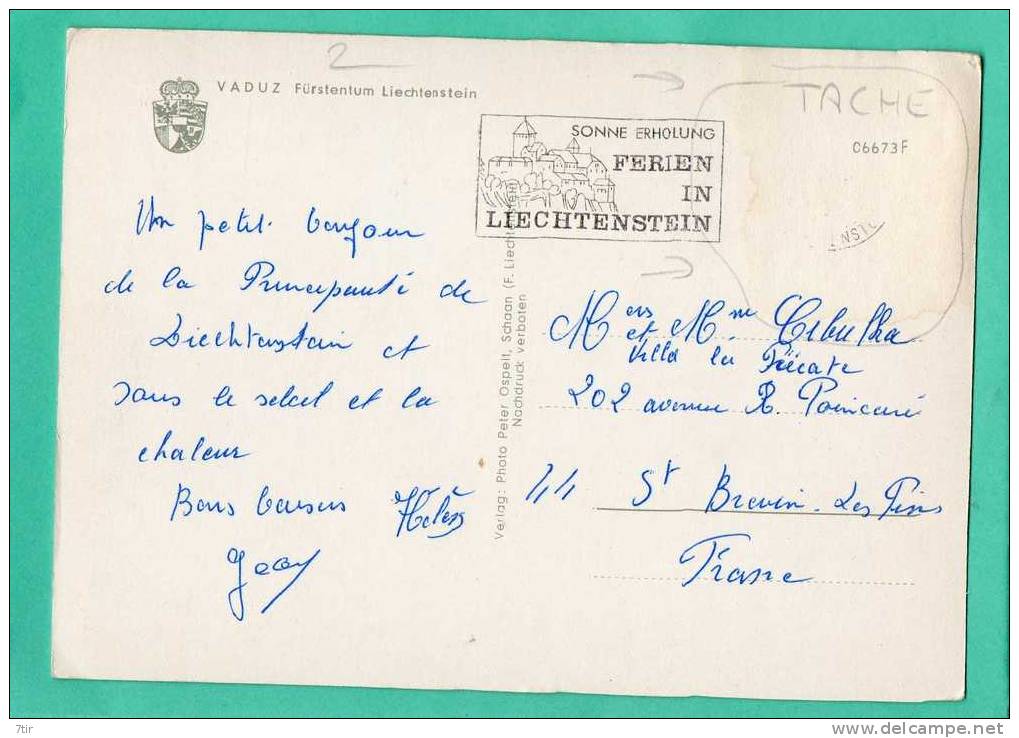 2
VADUZ Fürstentum Liechtenstein
TACHE
06673F
SONNE ERHOLUNG
FERIEN
IN
LIECHTENSTEIN
Un petit bonjour
de la Principauté de
Liechtenstein et
sous le soleil et la
chaleur
Bons baisers Hélène
Verlag: Photo Peter Ospelt, Schaan (F. Liechtenstein)
Nachdruck verboten
Mers et Mme Cibulka
Villa la
202 avenue R. Poincaré
44 St Brevin-Les Pins
France
7tir
www.delcampe.net